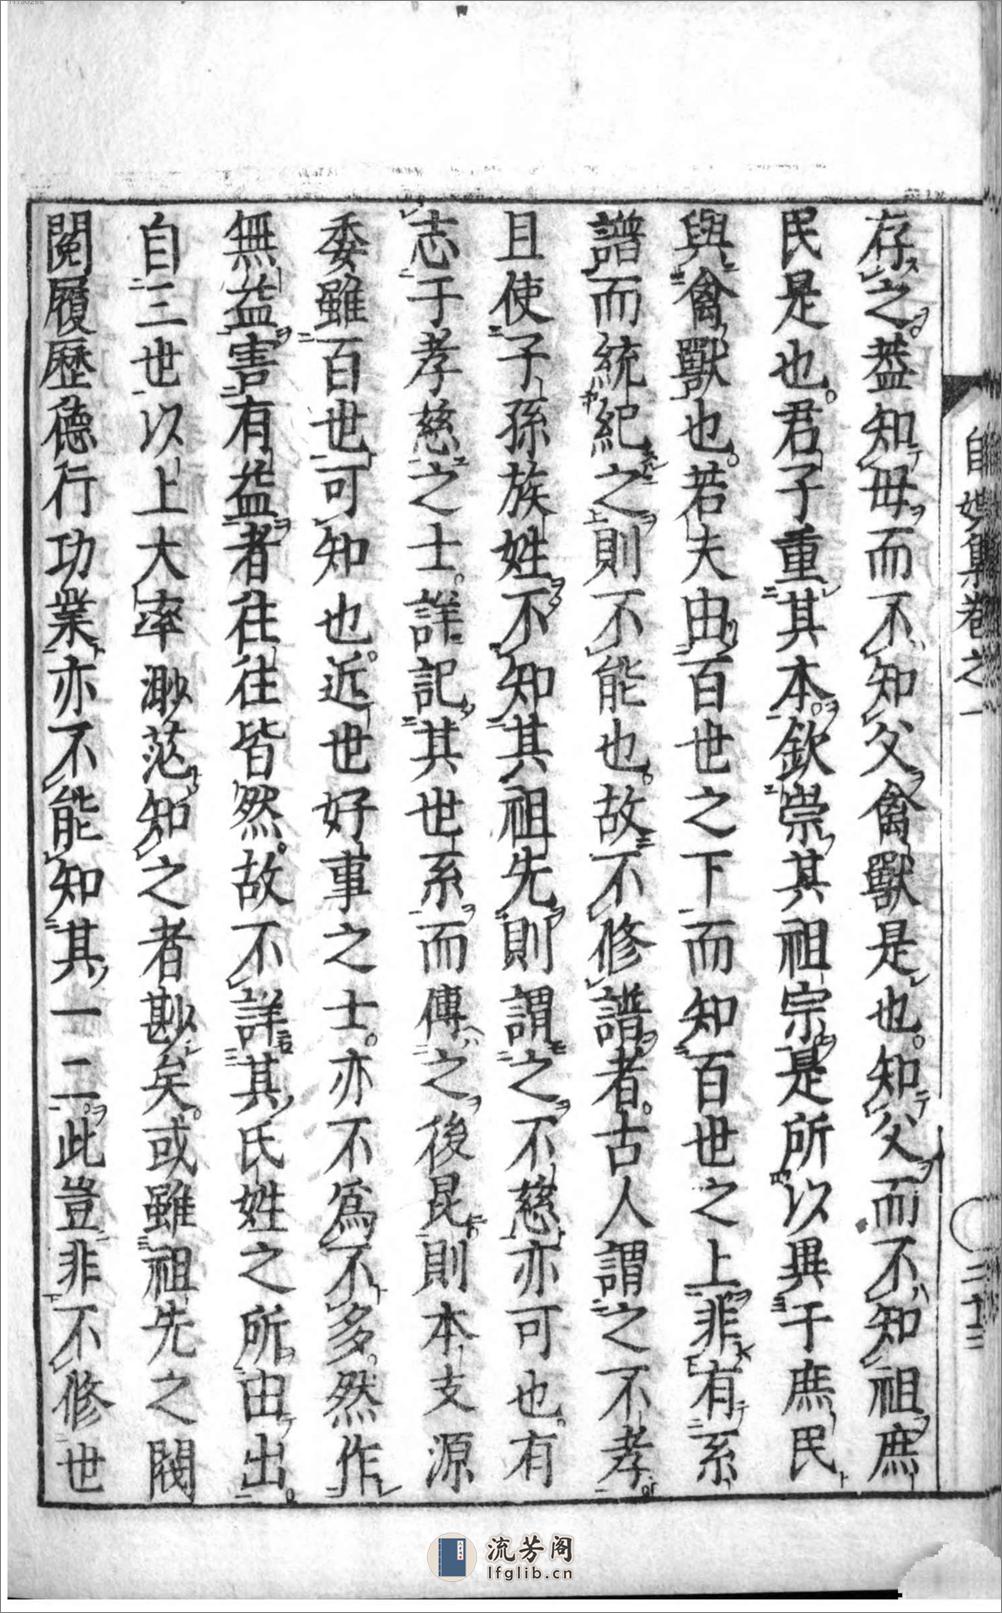 存之蓋知母而不知父禽獸是也。知父而不知祖庶
民是也。君子重其本。欽崇其祖宗是所以異于庶民
與禽獸也。若夫由百世之下而知百世之上非有系
譜而統紀之則不能也。故不修譜者。古人謂之不孝
且使子孫族姓不知其祖先則謂之不慈亦可也。有
志于孝慈之士。詳記其世系而傳之後昆則本支源
委雖百世可知也。近世好事之士。亦不爲不多。然作
無益害有益者往往皆然。故不詳其氏姓之所由出。
自三世以上大率渺茫知之者尠矣。或雖祖先之閥
閱履歷德行功業亦不能知其一二。此豈非不修世
卷之一
二十三
流芳阁
lfglib.cn